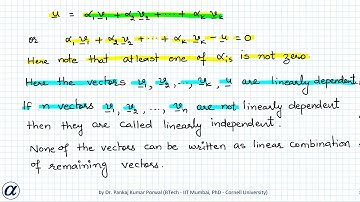 u = α₁v₁ + α₂v₂ + ··· + αₖvₖ
or α₁v₁ + α₂v₂ + ··· + αₖvₖ - u = 0
Here note that atleast one of αᵢs is not zero
Here the vectors v₁, v₂, ··, vₖ, u are linearly dependent.
If n vectors v₁, v₂, ···, vₙ are not linearly dependent
then they are called linearly independent.
None of the vectors can be written as linear combination
of remaining vectors.
α
by Dr. Pankaj Kumar Porwal (BTech - IIT Mumbai, PhD - Cornell University)